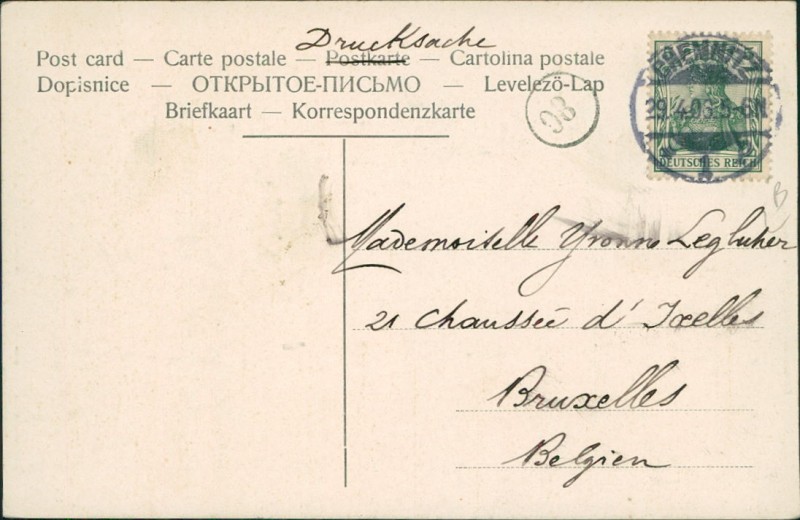 Drucksache
Post card — Carte postale — Postkarte — Cartolina postale
Dopisnice — ОТКРЫТОЕ-ПИСЬМО — Levelező-Lap
Briefkaart — Korrespondenzkarte
CHEMNITZ
29.4.06.5-6N
DEUTSCHES REICH
B
Mademoiselle Yvonne
21 chaussée d'Ixelles
Bruxelles
Belgien